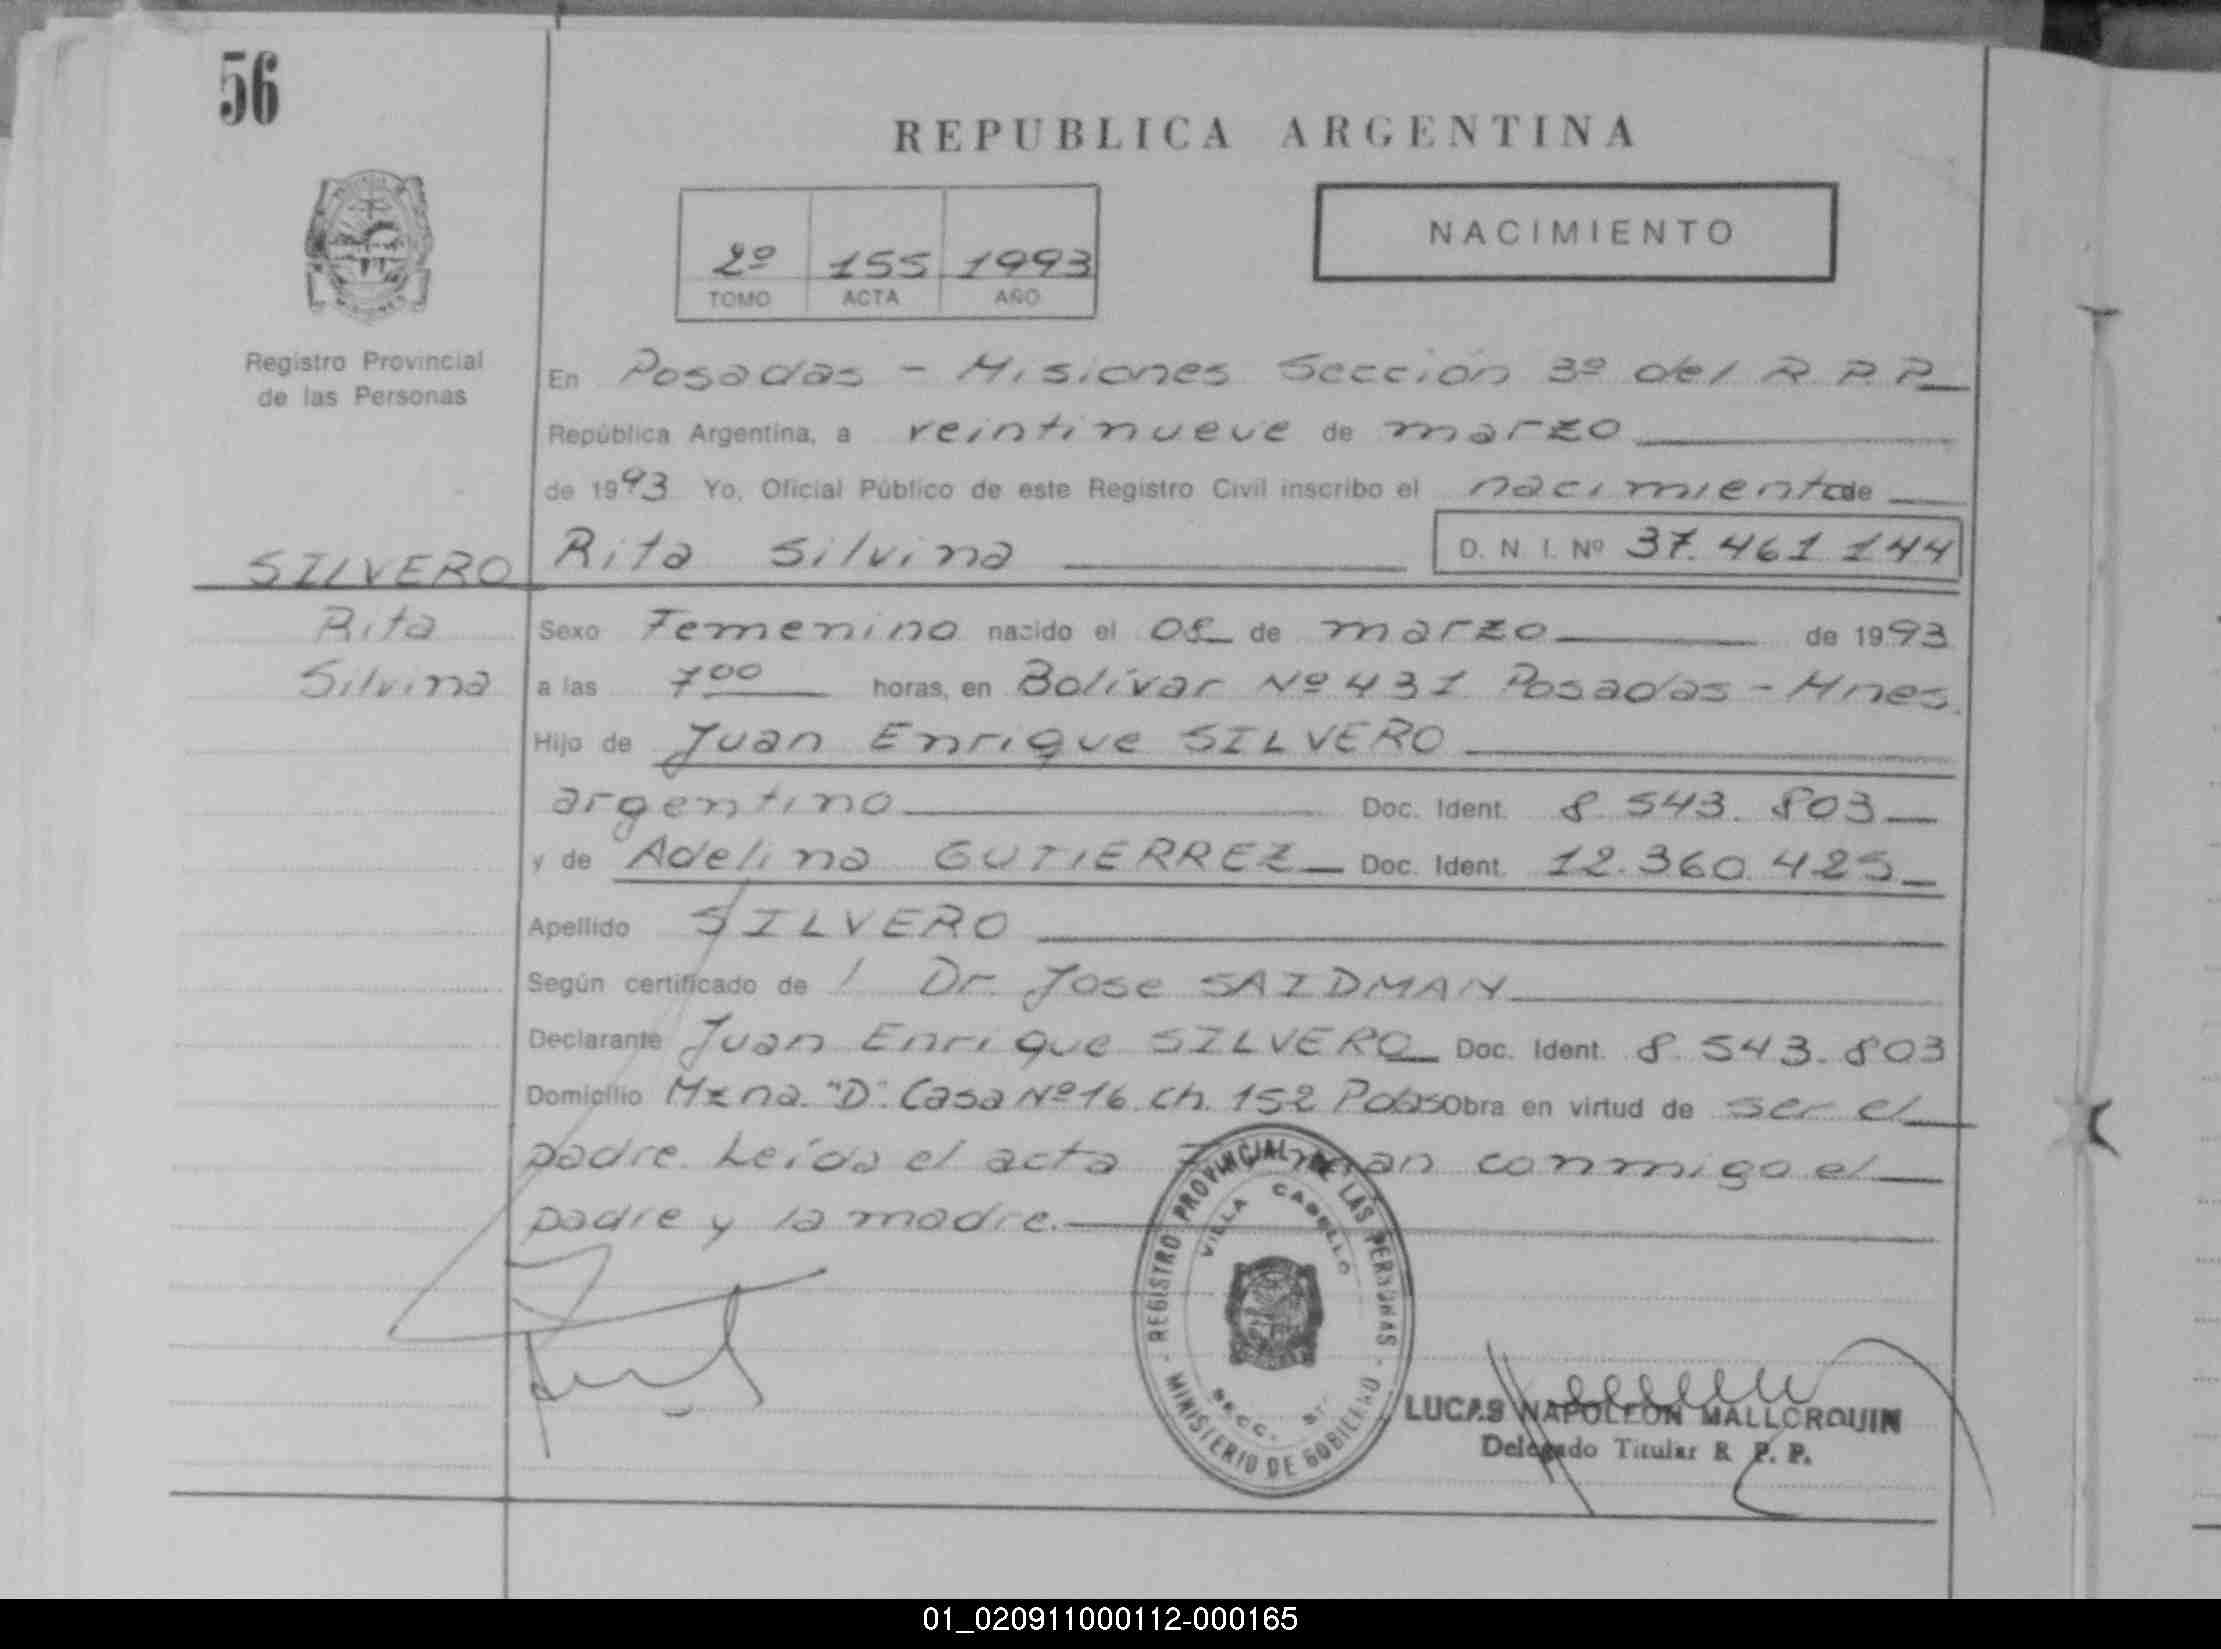 56
REPUBLICA ARGENTINA
NACIMIENTO
2º 155 1993
TOMO ACTA AÑO
Registro Provincial
de las Personas
En Posadas - Misiones Sección 3º del R.P.P.
República Argentina, a veintinueve de marzo
de 1993 Yo, Oficial Público de este Registro Civil inscribo el nacimiento de
SILVERO Rita Silvina D. N. I. Nº 37.461.144
Rita Sexo Femenino nacido el 08 de marzo de 1993
Silvina a las 7 00 horas, en Bolívar Nº 431 Posadas - Mnes.
Hijo de Juan Enrique SILVERO
argentino Doc. Ident. 8.543.803
y de Adelina GUTIERREZ Doc. Ident. 12.360.425
Apellido SILVERO
Según certificado de l Dr. Jose SAIDMAN
Declarante Juan Enrique SILVERO Doc. Ident. 8.543.803
Domicilio Mzna. "D". Casa Nº 16. Ch. 152 Pdas Obra en virtud de ser el
padre. Leída el acta Firman conmigo el
padre y la madre.
REGISTRO PROVINCIAL DE LAS PERSONAS
VILLA CABELLO
SECC.
MINISTERIO DE GOBIERNO
LUCAS NAPOLEON MALLORQUIN
Delegado Titular R. P. P.
01_020911000112-000165